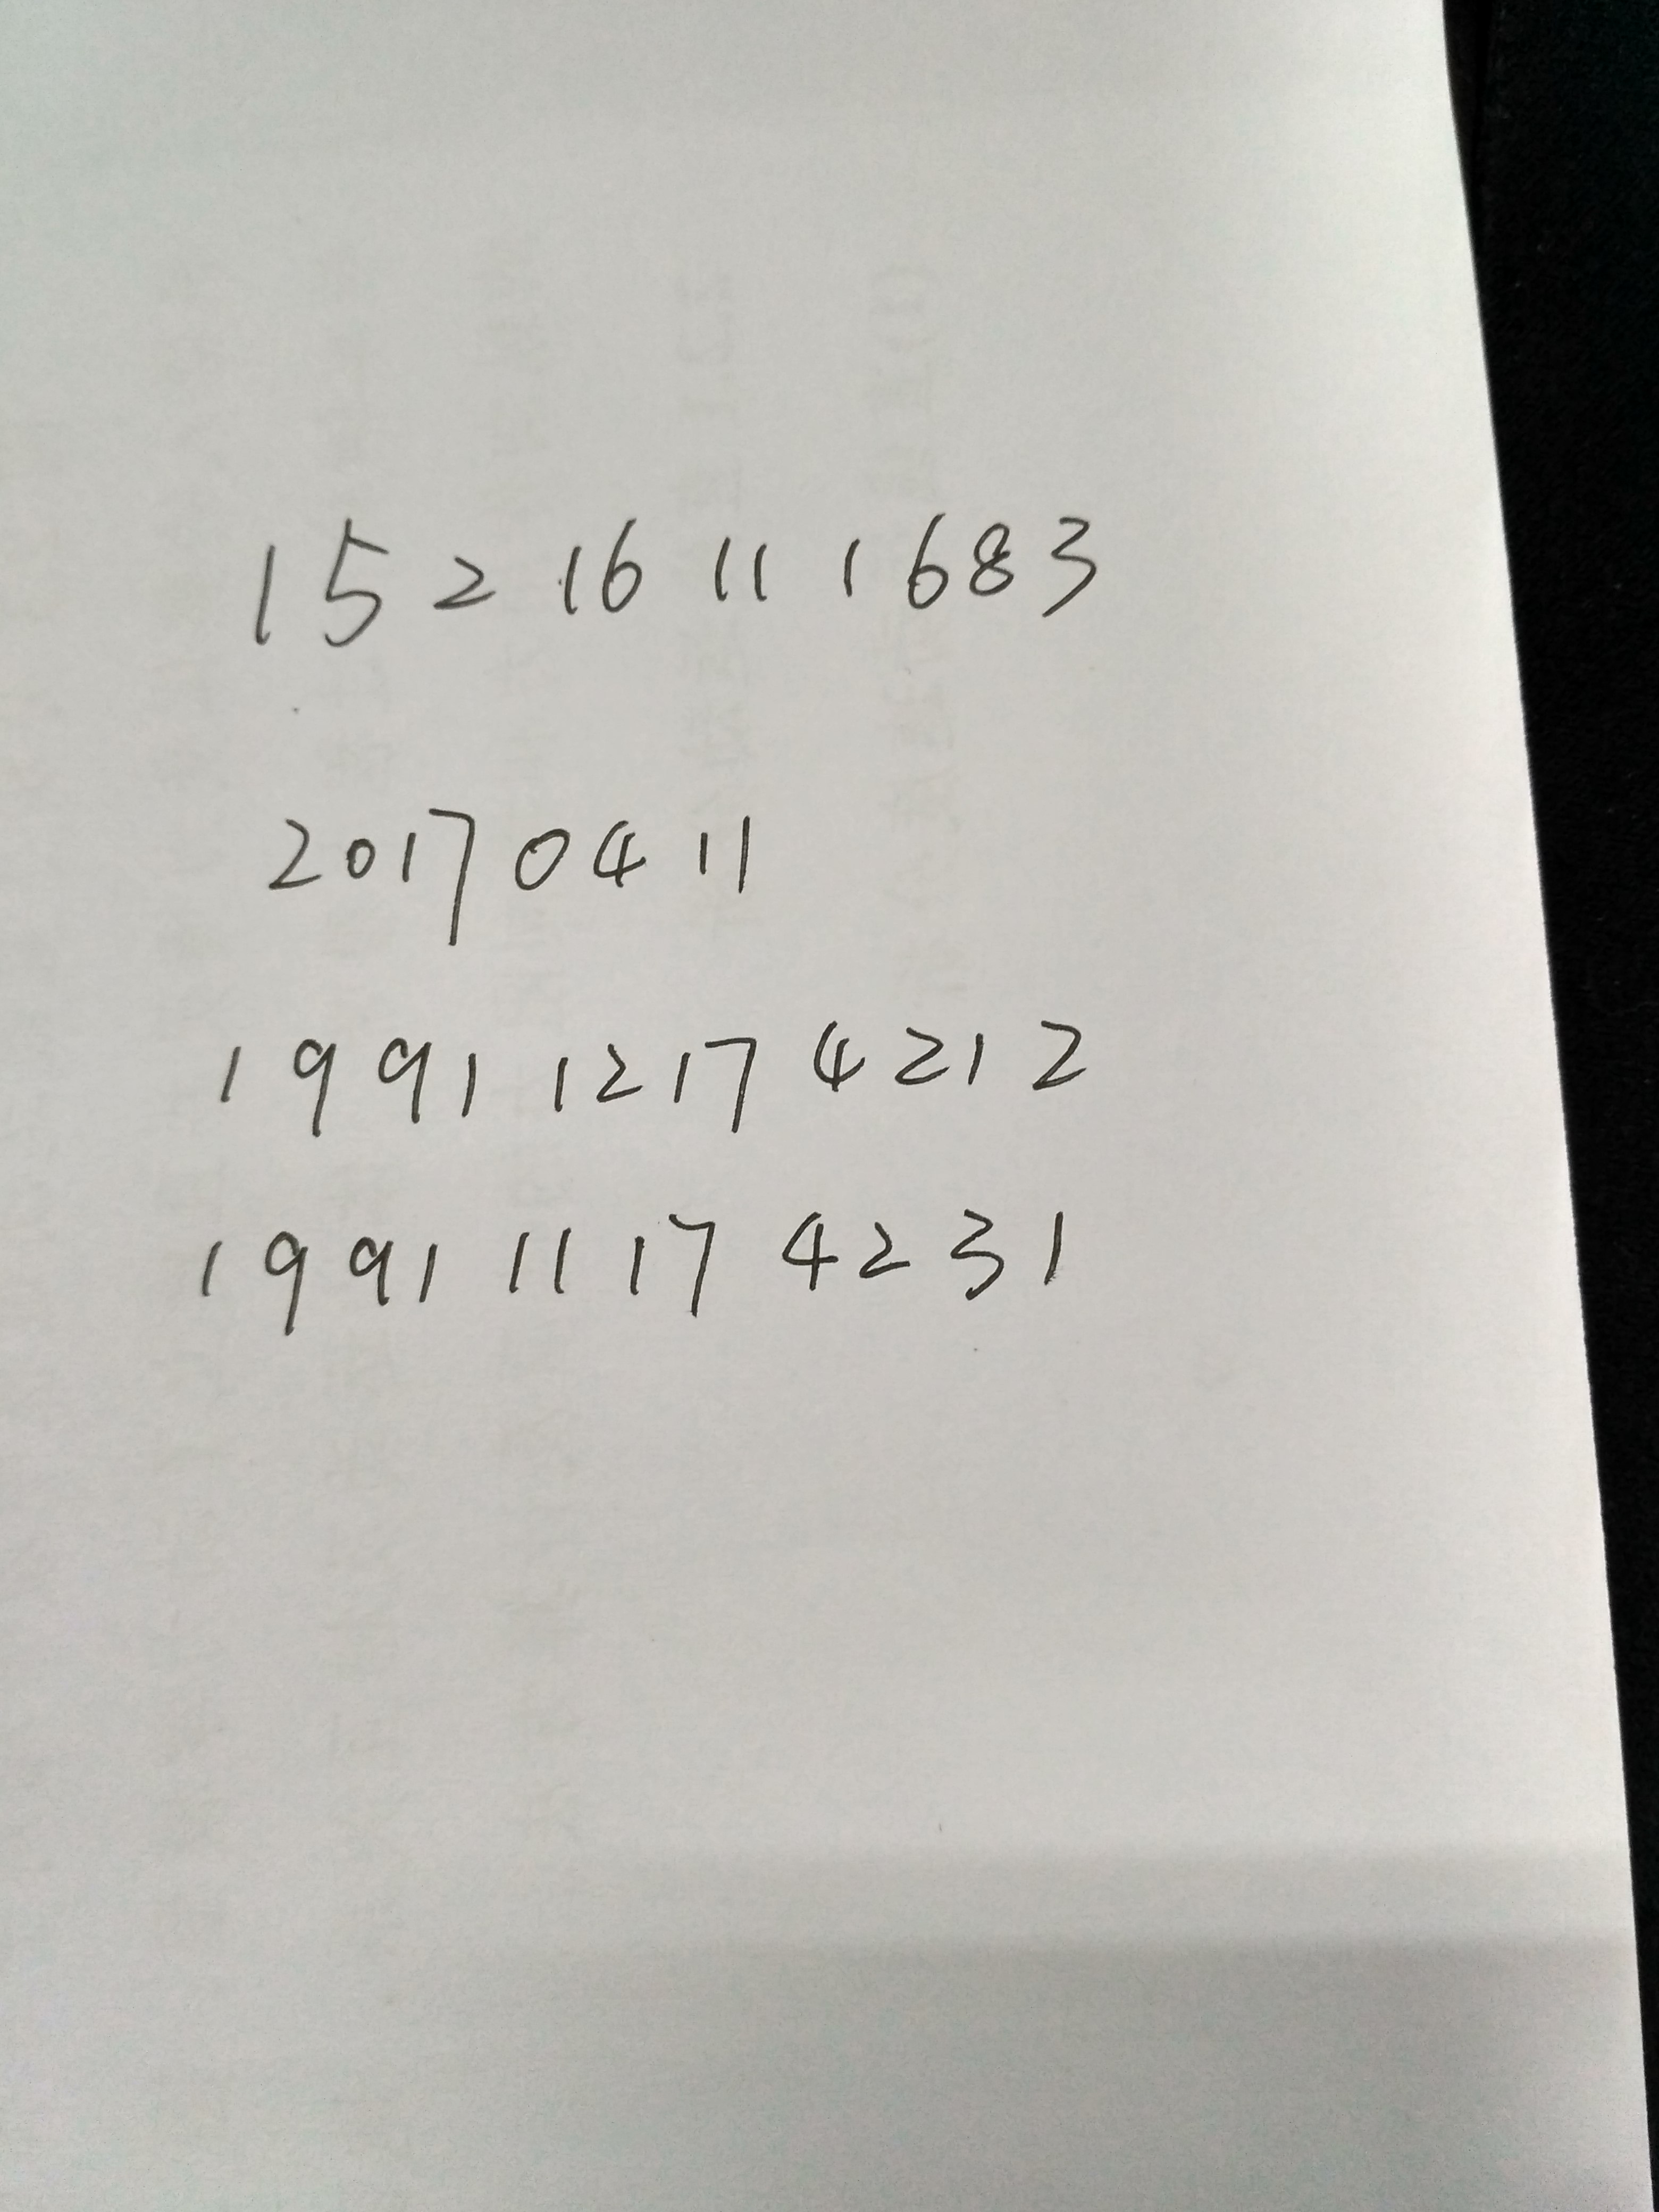 15216111683
20170411
199112174212
199111174231